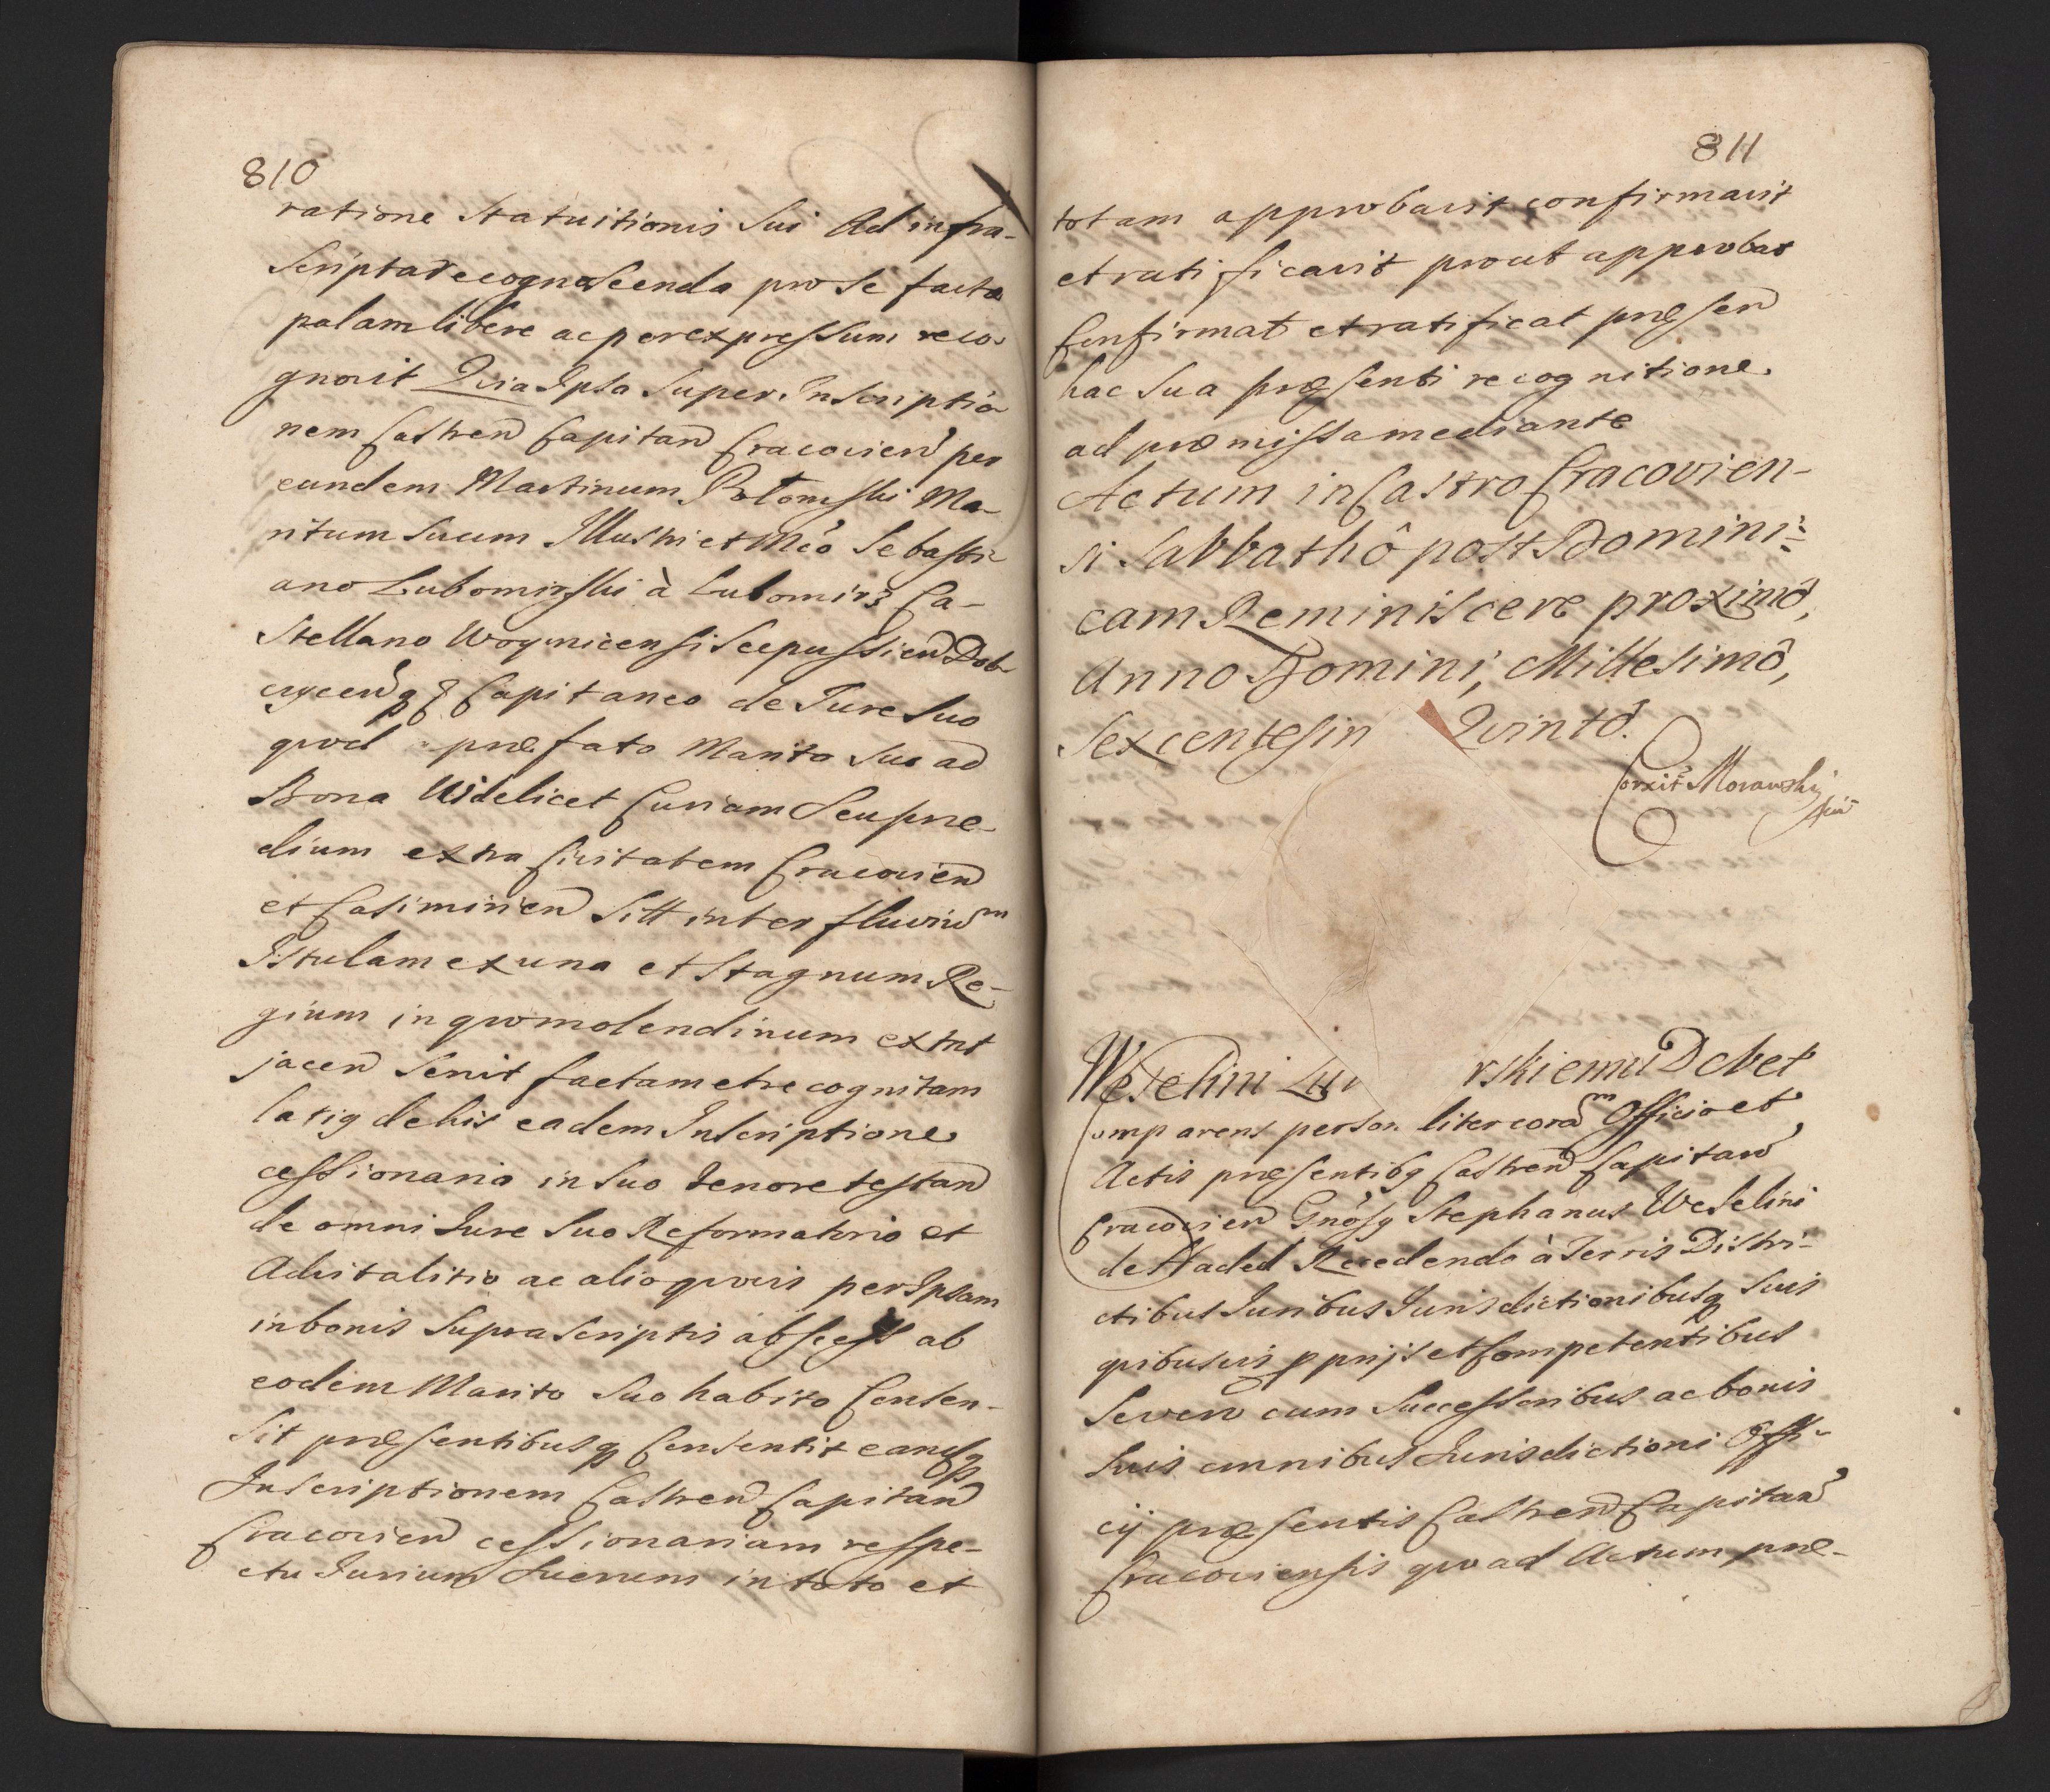 810
ratione Statuitionis Sui Ad infra-
Scripta recognoscenda pro Se facta
palam libere ac per expressum reco-
gnovit Quia Ipsa Super Inscriptio-
nem Castren Capitan Cracovien per
eundem Martinum Ma-
ritum Suum Illustri et Mco Sebasti-
ano Lubomirski à Lubomirz Ca-
Stellano Woynicensi Scepussien Dob-
cycenq Capitaneo de Iure Suo
quod præfato Marito Suo ad
Bona Videlicet Curiam Seu præ-
dium extra Civitatem Cracovien
et Casimirien Sitt inter fluviu͞m
Istulam ex una et Stagnum Re-
gium in quo molendinum extat
jacen Servit factam et recognitam
latiq de his eadem Inscriptione
cessionaria in Suo tenore testan
de omni Iure Suo Reformatorio et
Advitalitio ac alio quovis per Ipsam
in bonis Suprascriptis ab ab
eodem Marito Suo habito Consen-
Sit præsentibusq Consentit eamq
Inscriptionem Castren Capitan
Cracovien cessionariam respe-
ctu Iurium Suorum in toto et
811
totam approbavit confirmavit
et ratificavit prout approbat
Confirmat et ratificat præsen
hac Sua præsenti recognitione
ad præmissa mediante
Actum in Castro Cracovien-
si Sabbathô post Domini-
cam Reminiscere proximô,
Anno Domini, Millesimô,
Sexcentesin Quintô.
Corxit Morawski
Weselini Lu rskiemu Debet
Comparens person liter cora͞m Officio et
Actis præsentibq Castren Capitan
Cracovien Gnosq Stephanus Weselini
de Hadad Recedendo à Terris Distri-
ctibus Iuribus Iurisdictionibusq Suis
quibusvis pprijs et Competentibus
Seven cum Successoribus ac bonis
Suis omnibus Iurisdictioni Offi-
cij præsentis Castren Capitan
Cracoviensis quo ad Actum præ-